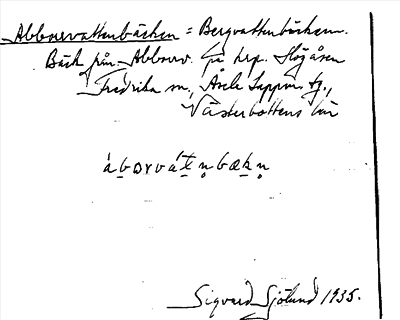 Abborrvattenbäcken = Bergvattenbäcken.
Bäck från Abborrv. på hrp. Högåsen
Fredrika sn, Åsele Lappm. tg.,
Västerbottens län
Sigvard Sjölund 1935.